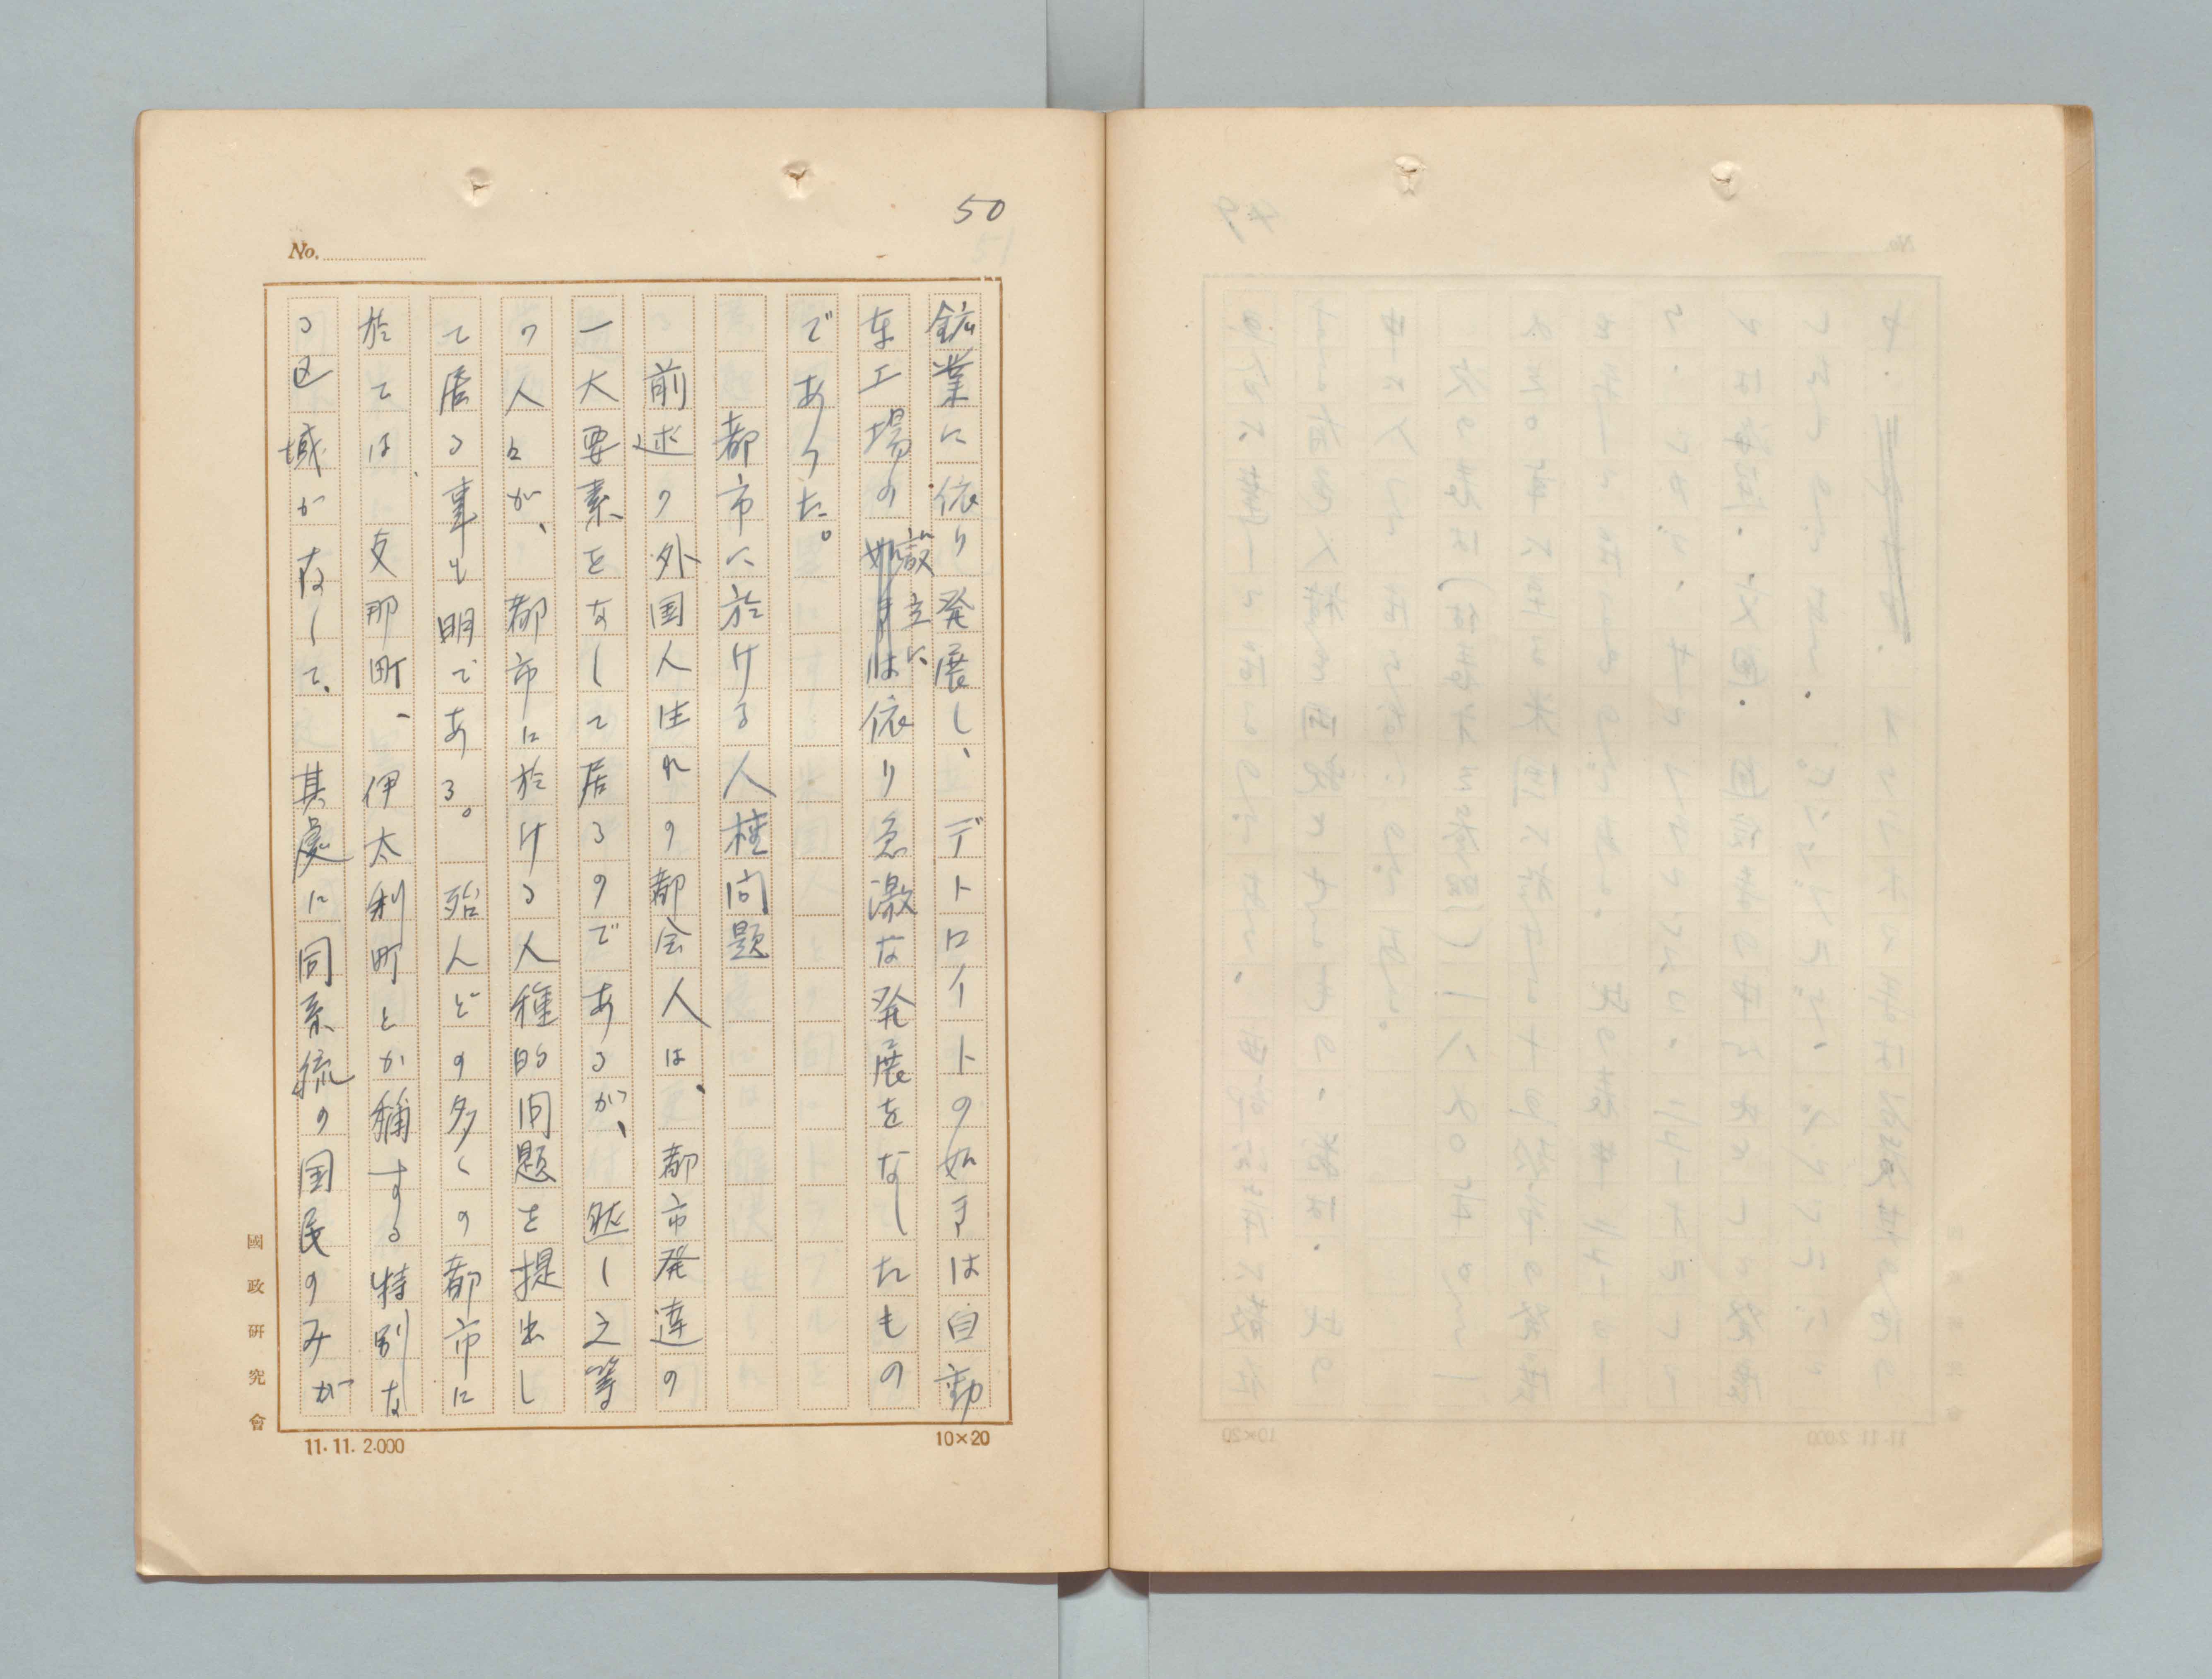 50
No.
鉱業に依り発展し、デトロイトの如きは自動
車工場の設立に依り急激な発展をなしたもの
であつた。
都市に於ける人種問題
前述の外国人生れの都会人は、都市発達の
一大要素をなして居るのであるが、然し之等
の人々が、都市に於ける人種的問題を提出し
て居る事も明である。殆んどの多くの都市に
於ては、支那町、伊太利町とか稱する特別な
る区域が存して、其處に同系統の国民のみが
國政研究會
11.11. 2.000
10×20